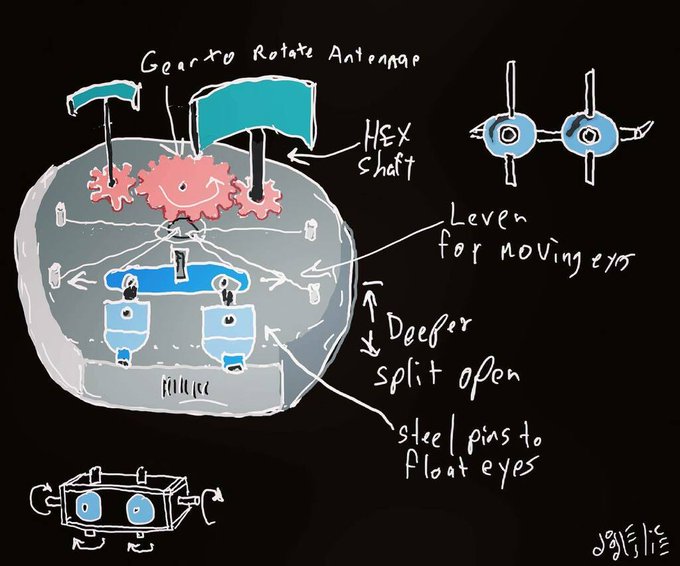 Gear to Rotate Antennae
HEX
shaft
Lever
for moving eyes
Deeper
split open
steel pins to
float eyes